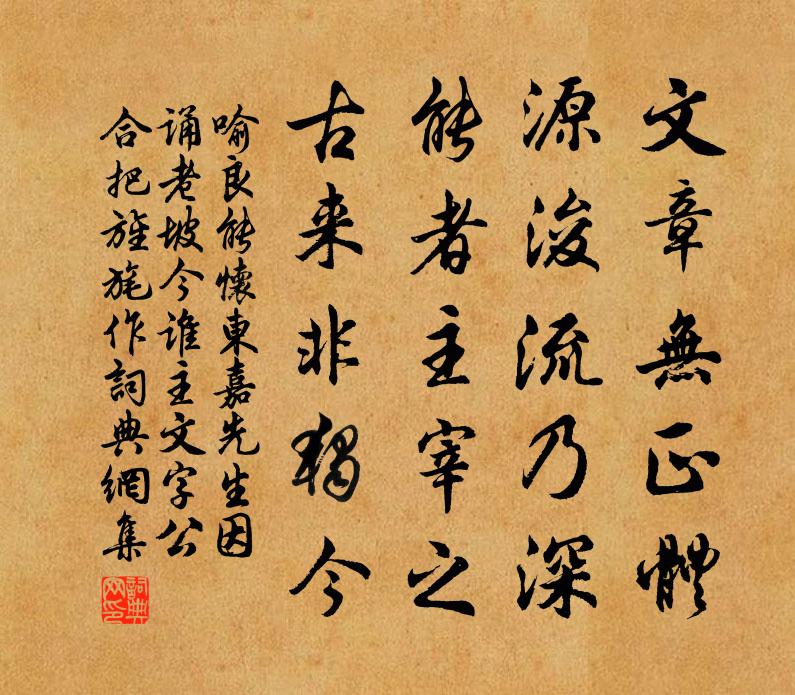 文章無正體
源浚流乃深
能者主宰之
古来非獨今
喻良能懷東嘉先生因
誦老坡今誰主文字公
合把旌旄作詞典網集
詞典
网印